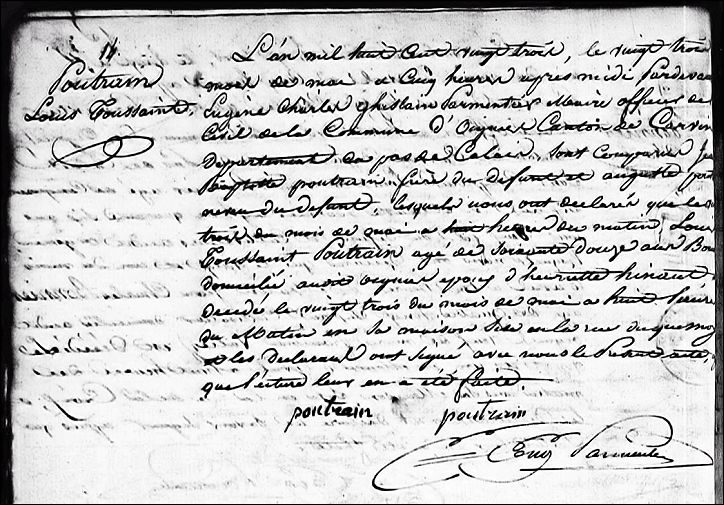 14
Poitrain
Louis Toussaint.
L'an mil huit Cent vingt trois, le vingt trois
mois de mai a Cinq heures après midi Pardevant
Eugène Charles Ghislain Parmentier Maire officier de
Civil de la Commune d'Oignies Canton de Carvin
Departement du pas de Calais, sont Comparus
Baptiste poutrain frère du defunt et auguste
neveu du defunt, lesquels nous ont declarés que le
trois du mois de mai a huit heures du matin, Louis
Toussaint Poutrain agé de Soixante douze ans
domicilié audit oignies epoux d'henriette hinaut,
decedé le vingt trois du mois de mai a huit heures
du Matin en Sa maison Sise en la rue
et les Declarants ont Signé avec nous le Present acte,
que Lecture leur en a été faite.
poutrain poutrain
Eug Parmentier